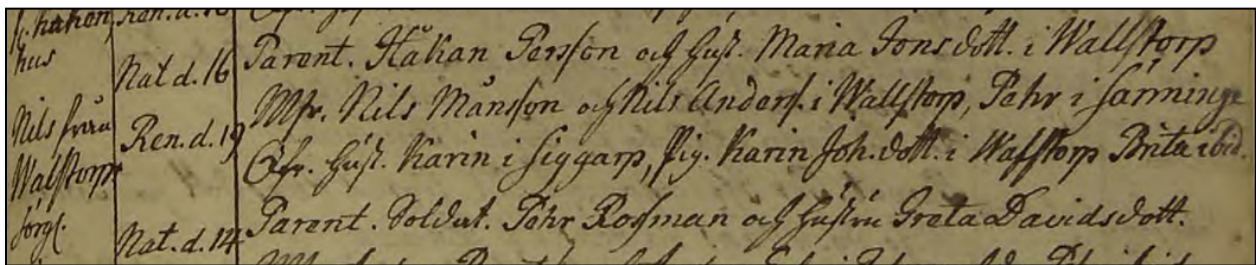 hus
Nat d. 16
Parent. Håkan Persson och Hust. Maria Jonsdott. i Wallstorp
Nils från
Ren. d. 19
Mfr. Nils Månsson och Nils Anders. i Wallstorp, Pehr i Sänninge
Wallstorp
Qfr. Hust. Karin i Siggarp, Pig. Karin Joh.dott. i Wallstorp Brita ibid.
Nat. d. 14
Parent. Soldat. Pehr Rosman och Hustru Greta Davidsdott.